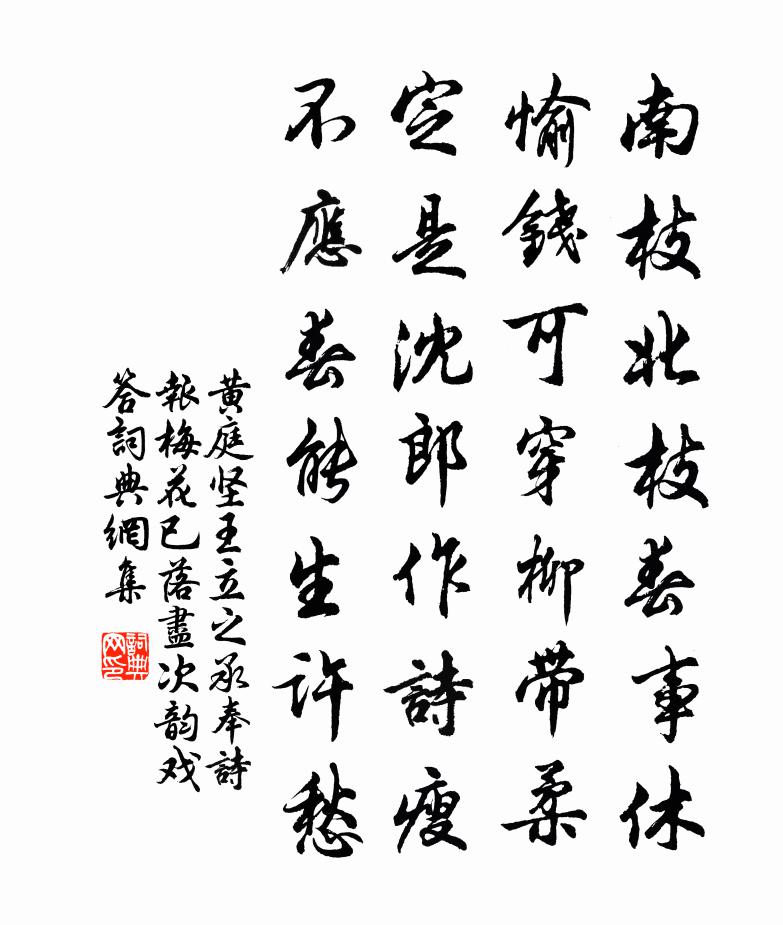 南枝北枝春事休
愉錢可穿柳带柔
定是沈郎作詩瘦
不應春能生許愁
黄庭坚王立之承奉詩
報梅花已落盡次韵戏
答詞典網集